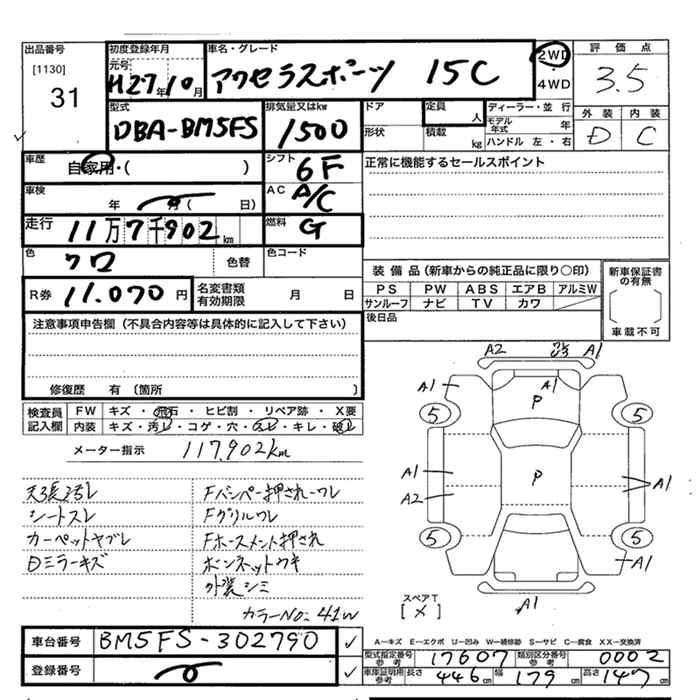 出品番号
[1130]
31
初度登録年月
元号
H27年10月
車名・グレード
アクセラスポーツ 15C
2WD
・
4WD
評価点
3.5
外装 内装
D C
型式
DBA-BM5FS
排気量又はkw
1500
ドア
形状
定員
人
積載
kg
ディーラー・並行
モデル年式 年
ハンドル 左・右
車歴
自家用・( )
シフト
6F
正常に機能するセールスポイント
車検
年 月( 日)
AC
A/C
走行
11万7千902km
燃料
G
色
クロ
色替
色コード
装備品(新車からの純正品に限り○印)
PS PW ABS エアB アルミW
サンルーフ ナビ TV カワ
新車保証書の有無
車載不可
R券
11.070円
名変書類有効期限
月 日
後日品
注意事項申告欄(不具合内容等は具体的に記入して下さい)
修復歴 有(箇所 )
検査員記入欄
FW キズ・飛石・ヒビ割・リペア跡・X要
内装 キズ・汚レ・コゲ・穴・スレ・キレ・破レ
メーター指示 117,902km
天張汚レ
シートスレ
カーペットヤブレ
Dミラーキズ
Fバンパー押されーワレ
Fグリルワレ
Fホースメント押され
ボンネットウキ
外装シミ
カラーNo: 41W
A2 A1
A1 A1
P
5 5
A1 P A1
A2
5 5
A1
A1
スペアT
[×]
車台番号
BM5FS-302790
登録番号
A-キズ E-エクボ U-凹み W-補修跡 S-サビ C-腐食 XX-交換済
型式指定番号参考
17607
類別区分番号参考
0002
車庫証明用参考
長さ 446cm 幅 179cm 高さ 147cm